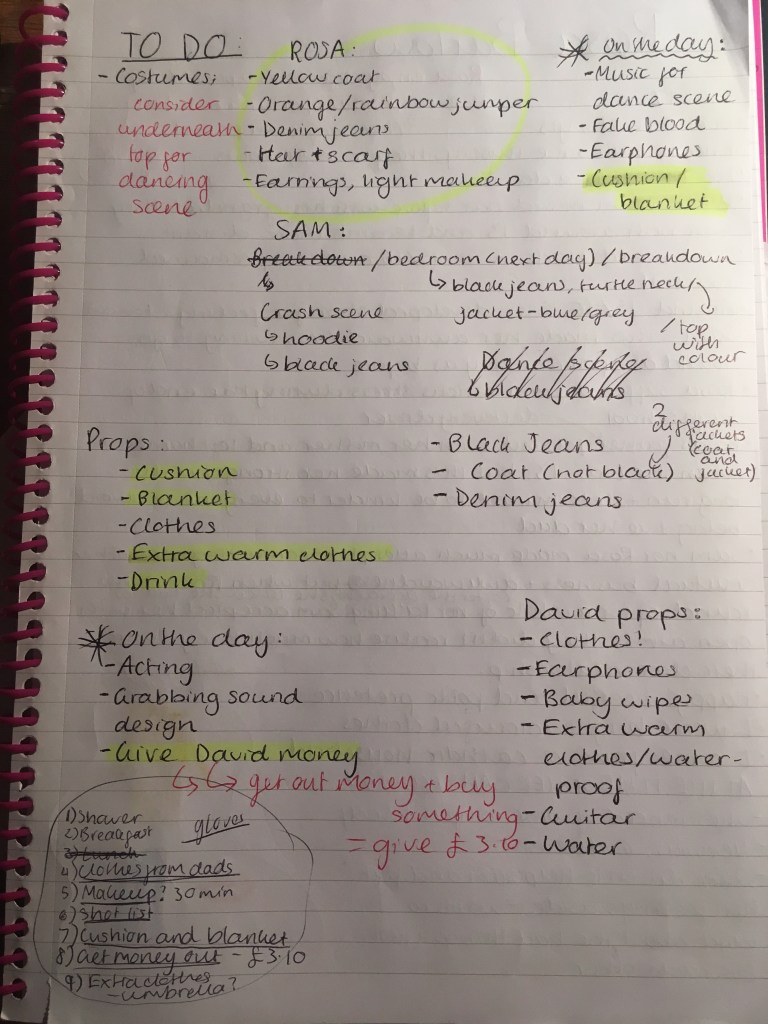 TO DO:
- Costumes;
consider
underneath
top for
dancing
scene
ROSA:
- Yellow coat
- Orange/rainbow jumper
- Denim jeans
- Hat + scarf
- Earrings, light makeup
* on the day:
- Music for
dance scene
- Fake blood
- Earphones
- Cushion/
blanket
SAM:
Breakdown /bedroom (next day) / breakdown
↳ black jeans, turtle neck/
jacket - blue/grey
/top
with
colour
↳
Crash scene
↳ hoodie
↳ black jeans
Dance scene
↳ black jeans
Props:
- Cushion
- Blanket
- Clothes
- Extra warm clothes
- Drink
- Black Jeans
- Coat (not black)
- Denim jeans
2
different
jackets
(coat
and
jacket)
* on the day:
- Acting
- Grabbing sound
design
- Give David money
↳ ↳ get out money + buy
something
= give £3.10
David props:
- Clothes!
- Earphones
- Baby wipes
- Extra warm
clothes/water-
proof
- Guitar
- Water
1) Shower
2) Breakfast
3) Lunch
4) Clothes from dads
5) Makeup? 30 min
6) Shot list
7) Cushion and blanket
8) Get money out - £3.10
9) Extra clothes
- umbrella?
gloves